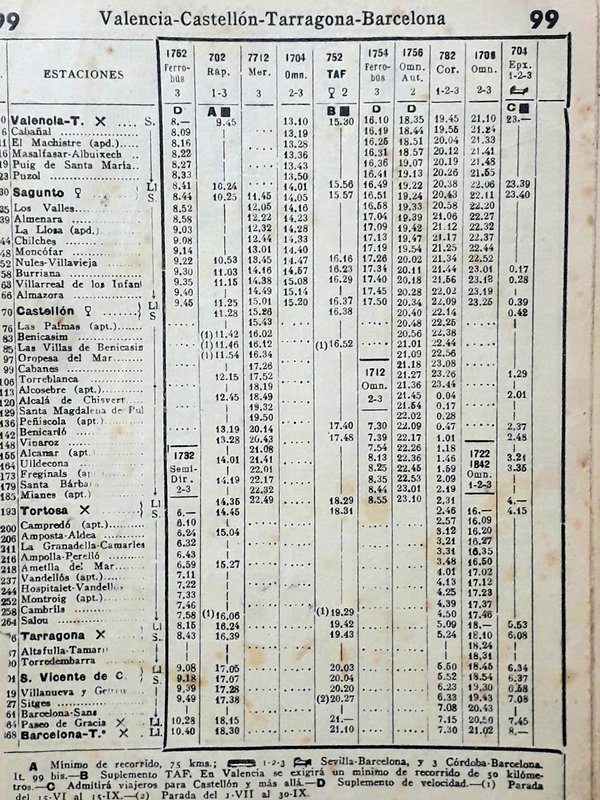 99 Valencia-Castellón-Tarragona-Barcelona 99
ESTACIONES
1762 702 7712 1704 752 1754 1756 782 1706 704
Ferro-bús Ráp. Mer. Omn. TAF Ferro-bús Omn. Aut. Cor. Omn. Epx. 1-2-3
3 1-3 3 2-3 2 3 2 1-2-3 2-3
D A B D D C
Valencia-T. S. 8.— 9.45 13.10 15.30 16.10 18.35 19.45 21.10 23.—
6 Cabañal 8.09 13.19 16.19 18.44 19.55 21.24
11 El Machistre (apd.) 8.16 13.28 16.25 18.51 20.04 21.33
16 Masalfasar-Albuixech 8.22 13.36 16.31 18.57 20.12 21.41
19 Puig de Santa María 8.27 13.43 16.36 19.07 20.19 21.48
23 Puzol 8.33 13.50 16.41 19.13 20.26 21.55
30 Sagunto Ll. 8.41 10.24 14.01 15.56 16.49 19.22 20.38 22.06 23.39
S. 8.44 10.25 11.45 14.05 15.57 16.51 19.24 20.43 22.11 23.40
35 Los Valles 8.52 12.05 14.16 16.58 19.33 20.58 22.20
39 Almenara 8.58 12.22 14.23 17.04 19.39 21.06 22.27
La Llosa (apd.) 9.03 12.32 14.28 17.09 19.42 21.12 22.32
44 Chilches 9.08 12.44 14.33 17.13 19.47 21.17 22.37
48 Moncófar 9.14 13.01 14.40 17.19 19.54 21.25 22.44
52 Nules-Villavieja 9.22 10.53 13.45 14.47 16.16 17.26 20.02 21.34 22.52
58 Burriana 9.30 11.03 14.16 14.57 16.23 17.34 20.11 21.44 23.01 0.17
68 Villarreal de los Infant 9.35 11.15 14.38 15.08 16.29 17.40 20.18 21.56 23.12 0.28
66 Almazora 9.40 14.49 15.14 17.45 20.28 22.02 23.19
70 Castellón Ll. 9.45 11.25 15.01 15.20 16.37 17.50 20.34 22.09 23.25 0.39
S. 11.28 15.26 16.38 20.40 22.14 0.42
76 Las Palmas (apt.) 15.43 20.48 22.25
83 Benicasim (1) 11.42 16.02 20.56 22.38
85 Las Villas de Benicasin (1) 11.46 16.12 (1) 16.52 21.01 22.44
97 Oropesa del Mar (1) 11.54 16.34 21.09 22.56
99 Cabanes 17.26 21.18 23.08
106 Torreblanca 12.15 17.52 1712 21.27 23.26 1.29
113 Alcosebre (apt.) 18.19 Omn. 21.36 23.44
120 Alcalá de Chisvert 12.45 18.49 2-3 21.45 0.04 2.01
129 Santa Magdalena de Pul 19.32 21.54 0.17
136 Peñíscola (apt.) 19.50 22.02 0.28
142 Benicarló 13.19 20.14 17.40 7.30 22.09 0.47 2.37
148 Vinaroz 13.28 20.43 17.48 7.39 22.17 1.01 2.48
156 Alcanar (apt.) 1732 21.08 7.54 22.26 1.18 1722
164 Ulldecona Semi-Dir. 14.01 21.41 8.13 22.36 1.46 1842 3.21
173 Freginals 2-3 22.01 8.25 22.45 1.59 Omn. 3.35
179 Santa Bárb 14.19 22.17 8.35 22.53 2.09 1-2-3
185 Mianes (apt.) 22.32 8.44 23.01 2.19
193 Tortosa Ll. 14.35 22.49 18.29 8.55 23.10 2.31 4.—
S. 6.— 14.45 18.31 2.46 16.— 4.15
200 Campredó (apt.) 6.10 2.57 16.09
206 Amposta-Aldea 6.24 15.04 3.12 16.20
211 La Granadella-Camarles 6.32 3.21 16.27
216 Ampolla-Perelló 6.43 3.31 16.35
218 Ametlla del Mar 6.59 15.27 3.48 16.50
237 Vandellós (apt.) 7.11 4.01 17.02
244 Hospitalet-Vandellós 7.22 4.13 17.12
252 Montroig (apt.) 7.33 4.25 17.23
258 Cambrils 7.46 4.39 17.37
264 Salou 7.58 (1) 16.06 (1) 19.29 4.50 17.46
76 Tarragona Ll. 8.15 16.24 19.42 5.09 18.— 5.53
S. 8.43 16.39 19.43 5.24 18.10 6.08
Altafulla-Tamari 18.24
Torredembarra 18.31
S. Vicente de C. Ll. 9.08 17.05 20.03 5.50 18.45 6.34
S. 9.18 17.07 20.04 5.52 18.54 6.37
19 Villanueva y Ge 9.39 17.28 20.20 6.23 19.30 6.58
27 Sitges 9.49 17.38 (2) 20.27 6.33 19.43 7.08
61 Barcelona-Sans 7.08 20.43
64 Paseo de Gracia Ll. 10.28 18.15 21.— 7.15 20.50 7.45
368 Barcelona-T.º Ll. 10.40 18.30 21.10 7.30 21.02 8.—
A Mínimo de recorrido, 75 kms.; 1-2-3 Sevilla-Barcelona, y 3 Córdoba-Barcelona.
It. 99 bis.—B Suplemento TAF. En Valencia se exigirá un mínimo de recorrido de 50 kilóme-
tros.—C Admitirá viajeros para Castellón y más allá.—D Suplemento de velocidad.—(1) Parada
del 15-VI al 15-IX.—(2) Parada del 1-VII al 30-IX.